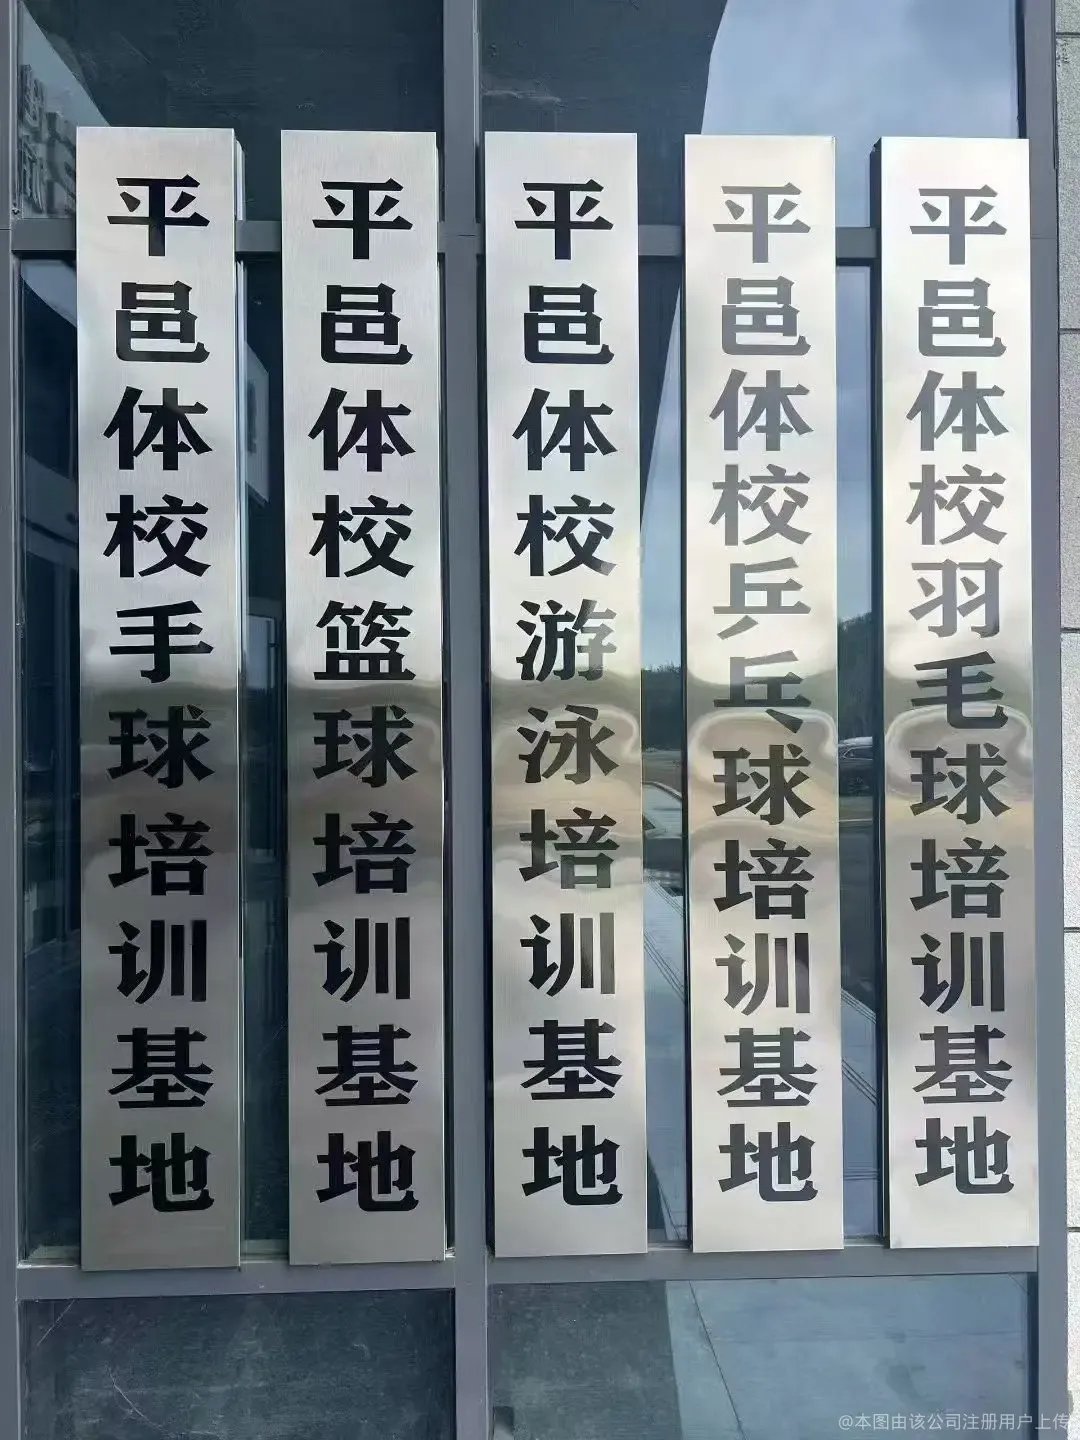 平邑体校手球培训基地
平邑体校篮球培训基地
平邑体校游泳培训基地
平邑体校乒乓球培训基地
平邑体校羽毛球培训基地
@本图由该公司注册用户上传